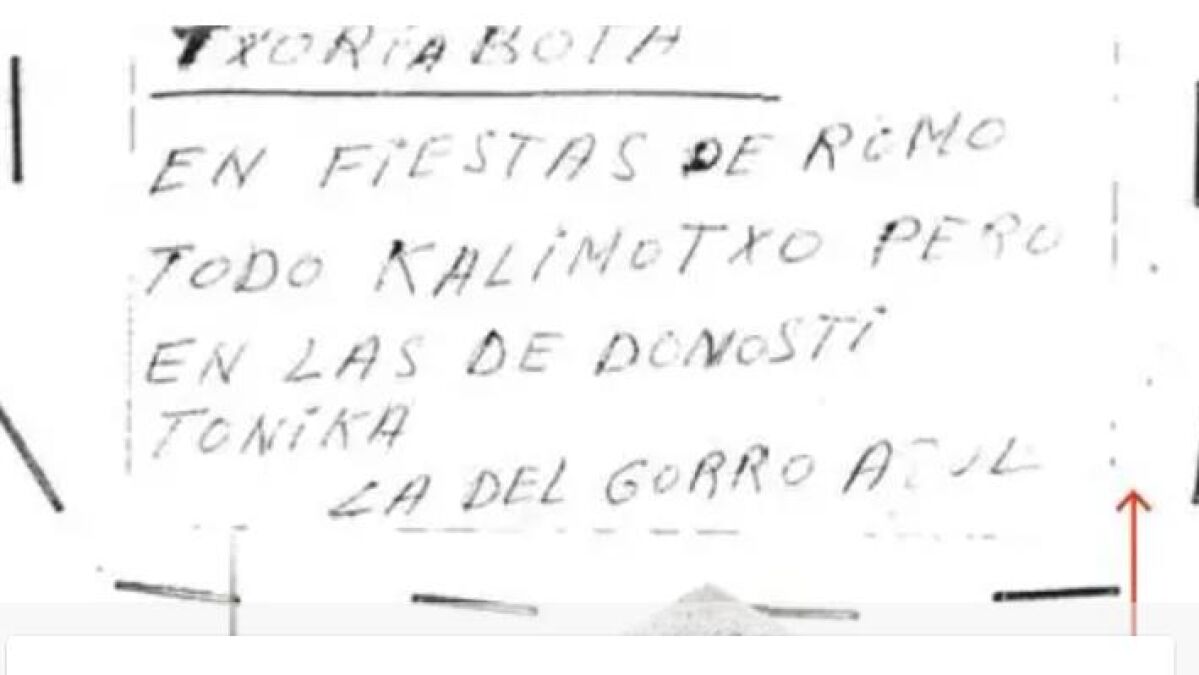 TXORIABOTA
EN FiESTAS DE ROMO
TODO KALiMOTXO PERO
EN LAS DE DONOSTi
TONiKA
LA DEL GORRO AZUL